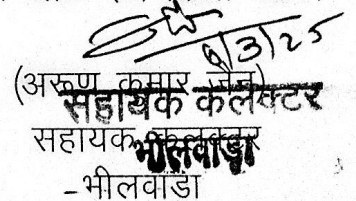 9/3/25
(अरूण कुमार जैन)
सहायक कलेक्टर
सहायक कलेक्टर
भीलवाड़ा
-भीलवाडा